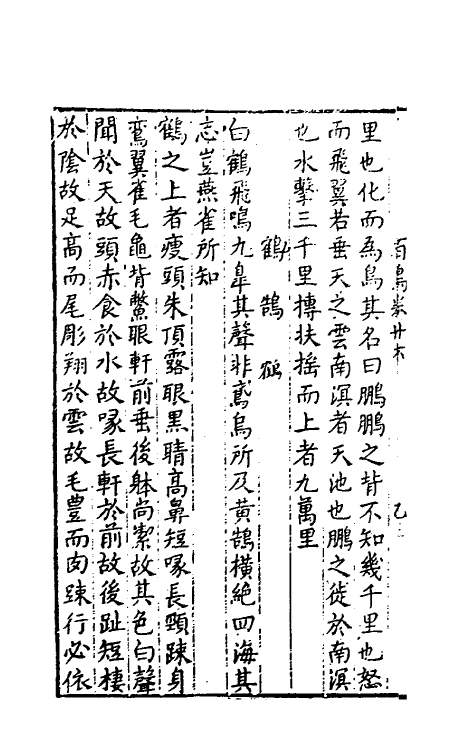 百鳥類廿六
里也化而為鳥其名曰鵬鵬之背不知幾千里也怒
而飛翼若垂天之雲南溟者天池也鵬之徙於南溟
也水擊三千里摶扶搖而上者九萬里
鶴 鵠
白鶴飛鳴九皐其聲非鳶烏所及黃鵠橫絶四海其
志豈燕雀所知
鶴之上者瘦頭朱頂露眼黑睛高鼻短喙長頸踈身
鸞翼雀毛龜背鱉眼軒前垂後躰尚潔故其色白聲
聞於天故頭赤食於水故喙長軒於前故後趾短棲
於陰故足高而尾彫翔於雲故毛豊而肉踈行必依